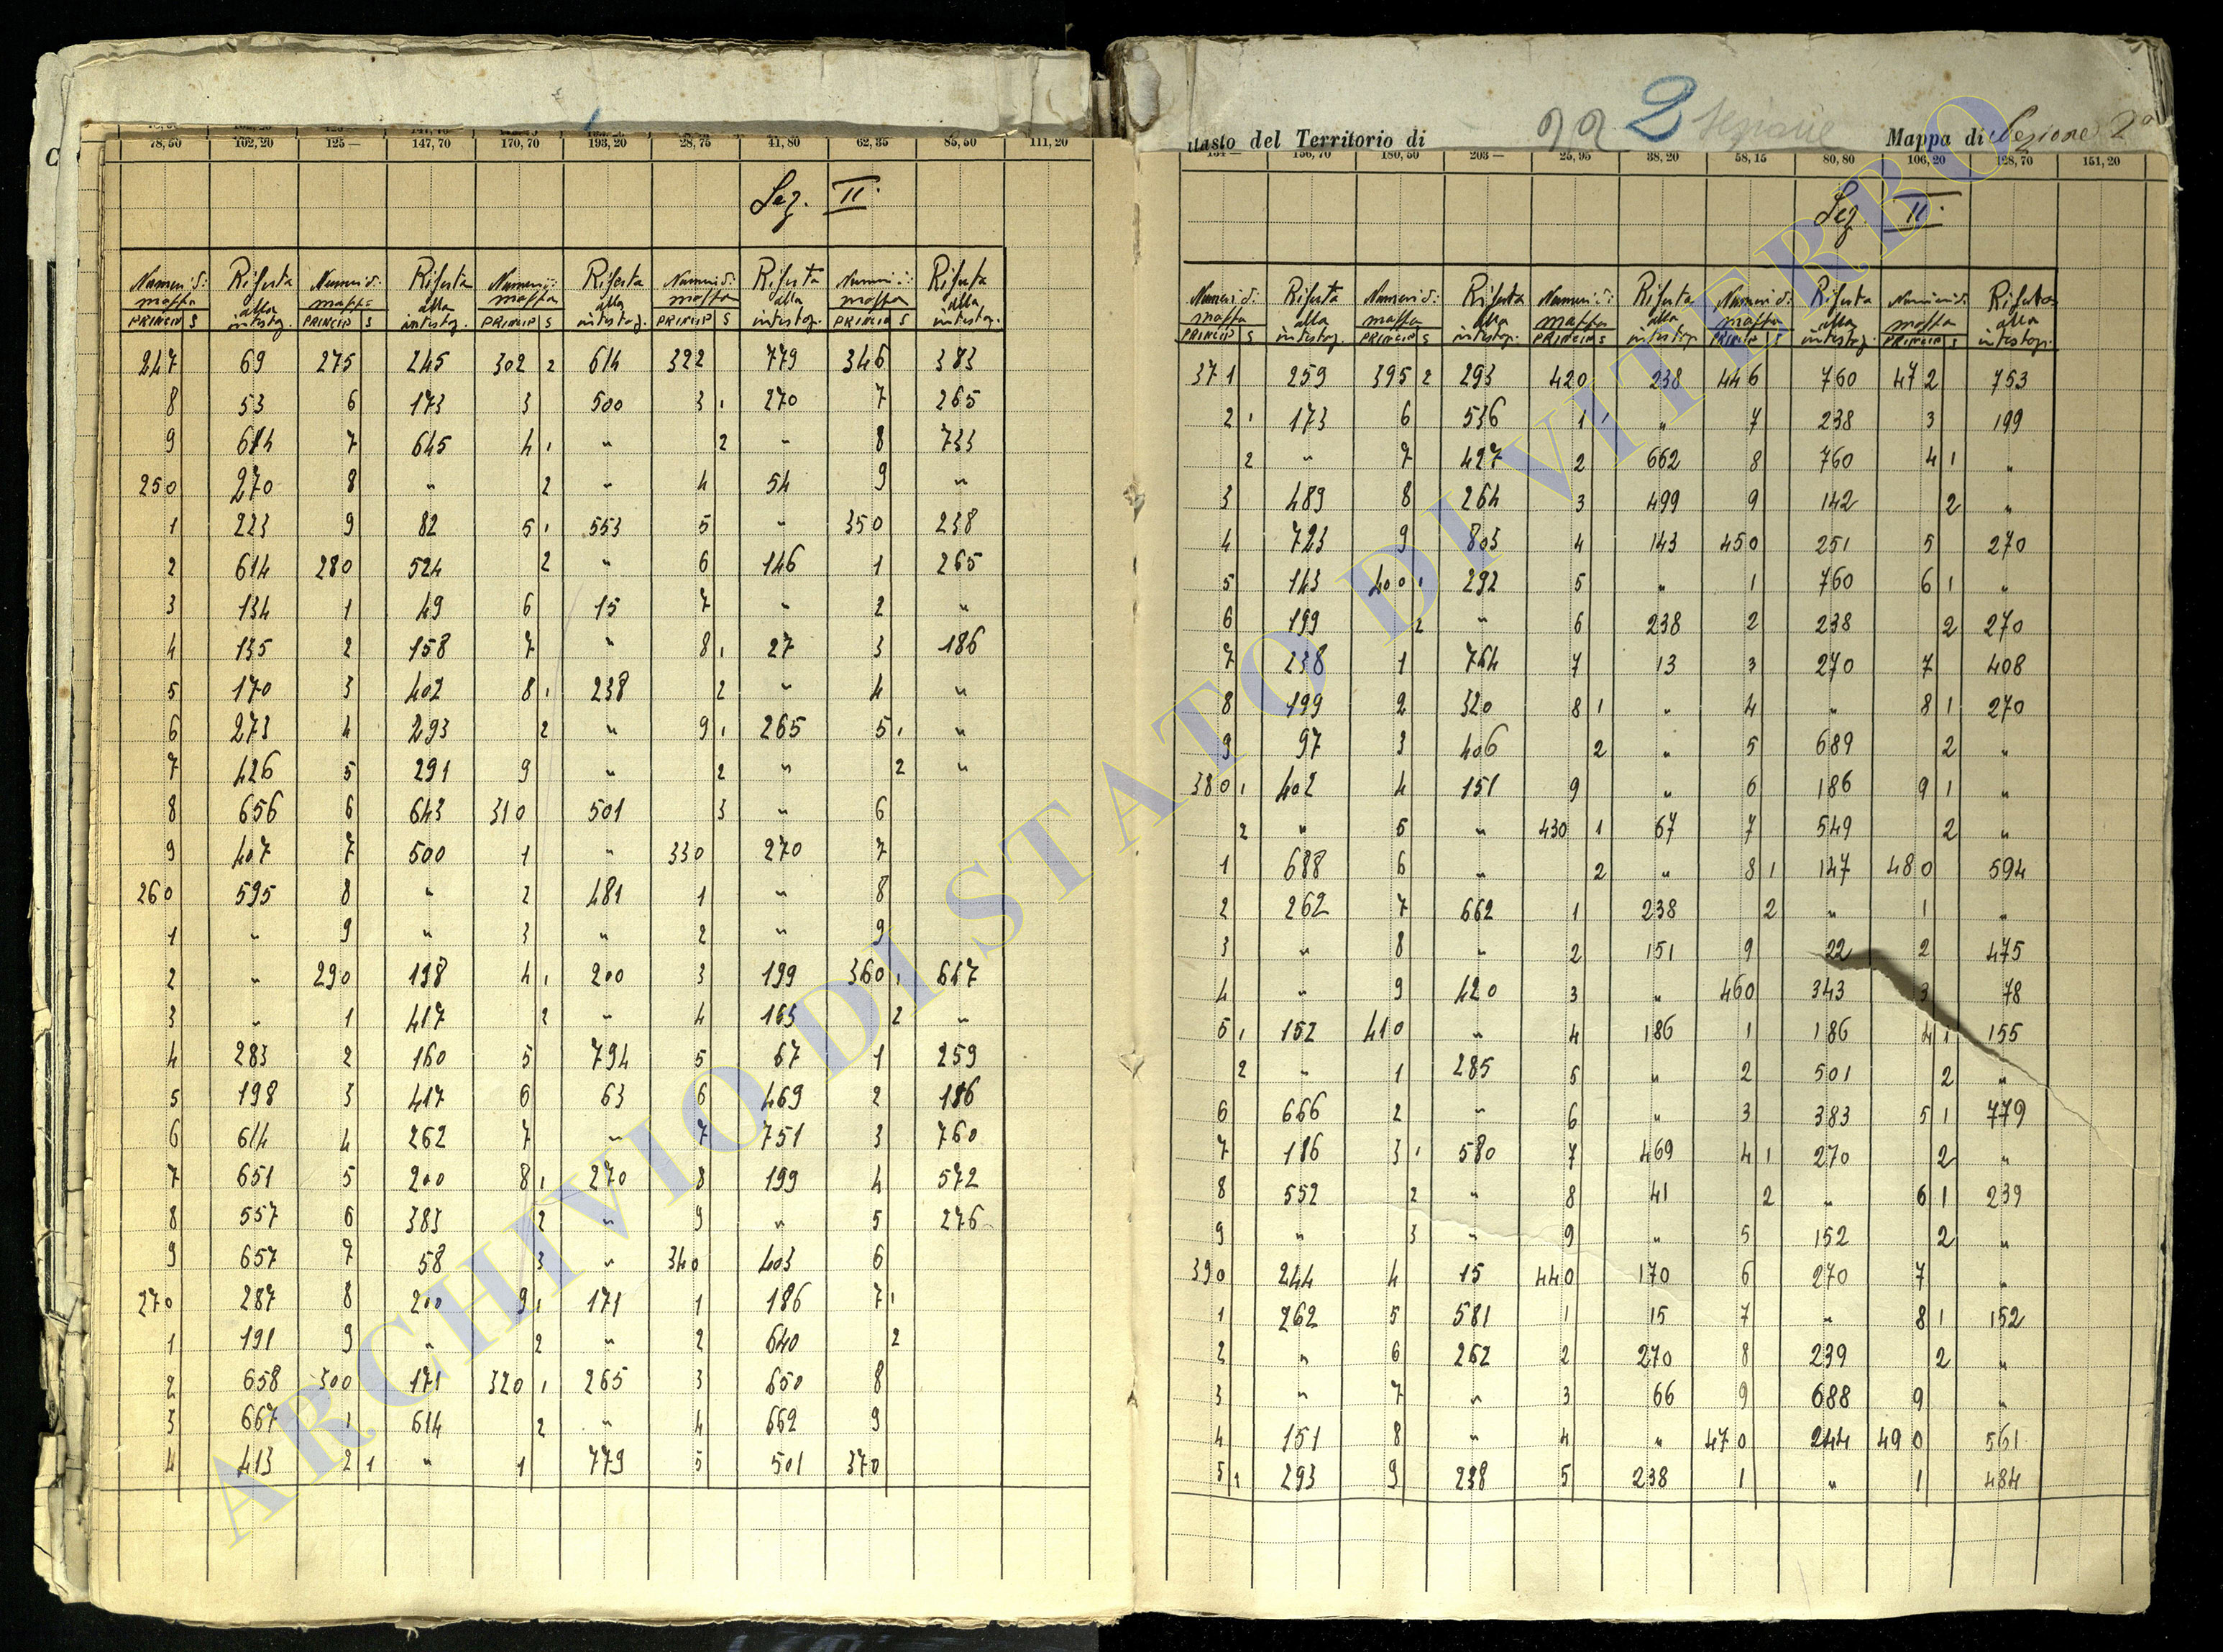 78,50 102,20 125 — 147,70 170,70 193,20 28,75 41,80 62,35 85,50 111,20
Sez. II.
PRINCIP S PRINCIP S PRINCIP S PRINCIP S PRINCIP S
247 69 275 245 302 2 614 322 779 346 383
8 53 6 173 3 500 3 1 270 7 265
9 614 7 645 4 1 " 2 " 8 733
250 270 8 " 2 " 4 54 9 "
1 223 9 82 5 1 553 5 " 350 238
2 614 280 524 2 " 6 146 1 265
3 134 1 49 6 15 7 " 2 "
4 135 2 158 7 " 8 1 27 3 186
5 170 3 402 8 1 238 2 " 4 "
6 273 4 293 2 " 9 1 265 5 1 "
7 426 5 291 9 " 2 " 2 "
8 656 6 643 310 501 3 " 6
9 407 7 500 1 " 330 270 7
260 595 8 " 2 481 1 " 8
1 " 9 " 3 " 2 " 9
2 " 290 198 4 1 200 3 199 360 1 667
3 " 1 417 2 " 4 165 2 "
4 283 2 160 5 794 5 67 1 259
5 198 3 417 6 63 6 469 2 186
6 614 4 262 7 " 7 751 3 760
7 651 5 200 8 1 270 8 199 4 572
8 557 6 383 2 " 9 " 5 276
9 657 7 58 3 " 340 403 6
270 287 8 200 9 1 171 1 186 7 1
1 191 9 " 2 " 2 640 2
2 658 300 171 320 1 265 3 650 8
3 667 1 614 2 " 4 662 9
4 413 2 1 " 1 779 5 501 370
tasto del Territorio di 2 sezione Mappa di Sezione 2a
134 — 156,70 180,50 203 — 25,95 38,20 58,15 80,80 106,20 128,70 151,20
Sez II.
PRINCIP S PRINCIP S PRINCIP S PRINCIP S PRINCIP S
371 259 395 2 293 420 238 446 760 472 753
2 1 173 6 536 1 1 " 7 238 3 199
2 " 7 427 2 662 8 760 4 1 "
3 489 8 264 3 499 9 142 2 "
4 723 9 803 4 143 450 251 5 270
5 143 400 1 292 5 " 1 760 6 1 "
6 199 2 " 6 238 2 238 2 270
7 238 1 764 7 13 3 270 7 408
8 199 2 320 8 1 " 4 " 8 1 270
9 97 3 406 2 " 5 689 2 "
380 1 402 4 151 9 " 6 186 9 1 "
2 " 5 " 430 1 67 7 549 2 "
1 688 6 " 2 " 8 1 147 480 594
2 262 7 662 1 238 2 " 1 "
3 " 8 " 2 151 9 22 2 475
4 " 9 420 3 " 460 343 3 78
5 1 152 410 " 4 186 1 186 4 1 155
2 " 1 285 5 " 2 501 2 "
6 666 2 " 6 " 3 383 5 1 779
7 186 3 1 580 7 469 4 1 270 2 "
8 552 2 " 8 41 2 " 6 1 239
9 " 3 " 9 " 5 152 2 "
390 244 4 15 440 170 6 270 7 "
1 262 5 581 1 15 7 " 8 1 152
2 " 6 262 2 270 8 239 2 "
3 " 7 " 3 66 9 688 9 "
4 151 8 " 4 " 470 244 490 561
5 1 293 9 238 5 238 1 " 1 484
ARCHIVIO DI STATO DI VITERBO